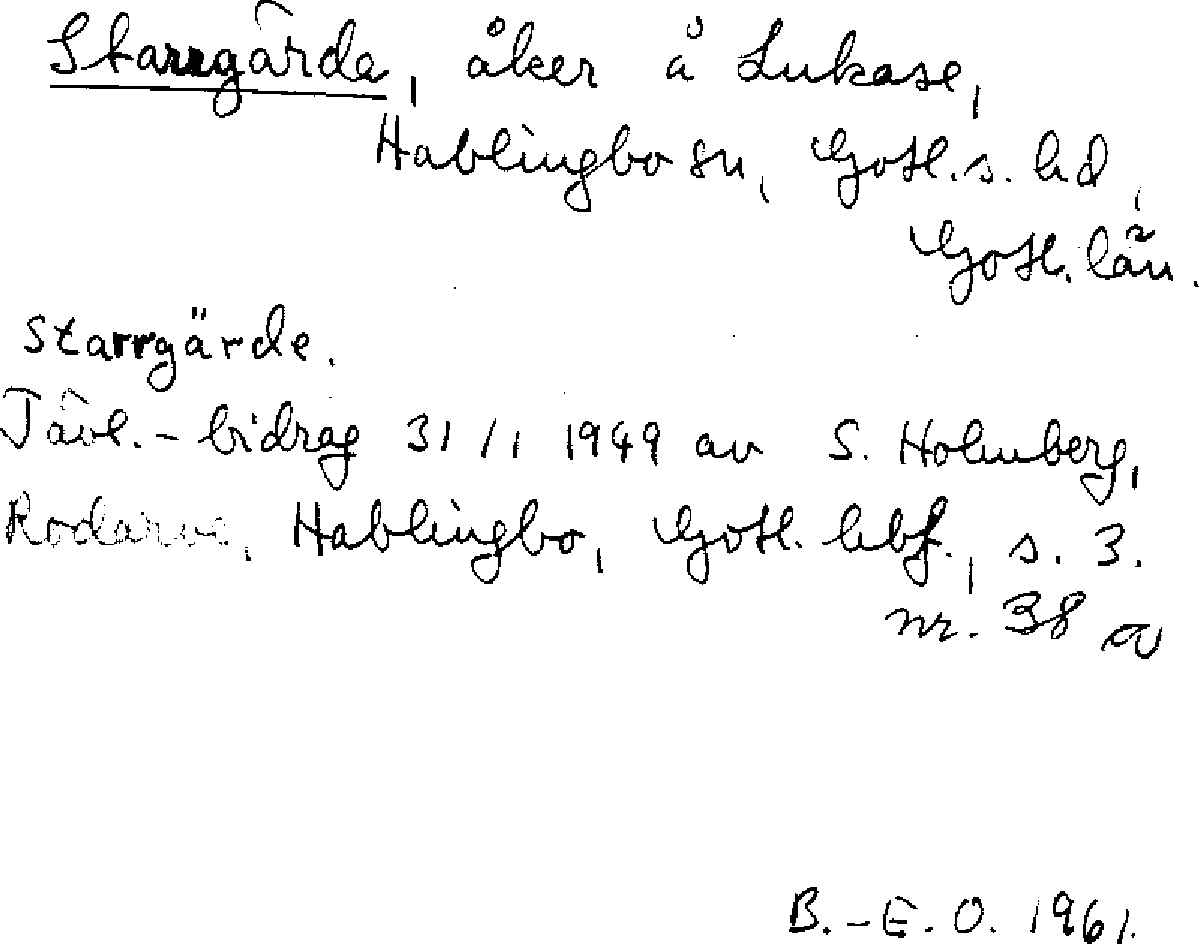 Starrgärde, åker å Lukase,
Hablingbo sn, Gotl. s. hd,
Gotl. län.
Starrgärde.
Tävl.-bidrag 31/1 1949 av S. Holmberg,
Rodarve, Hablingbo, Gotl. hbf., s. 3.
nr. 38 a
B.-E. O. 1961.